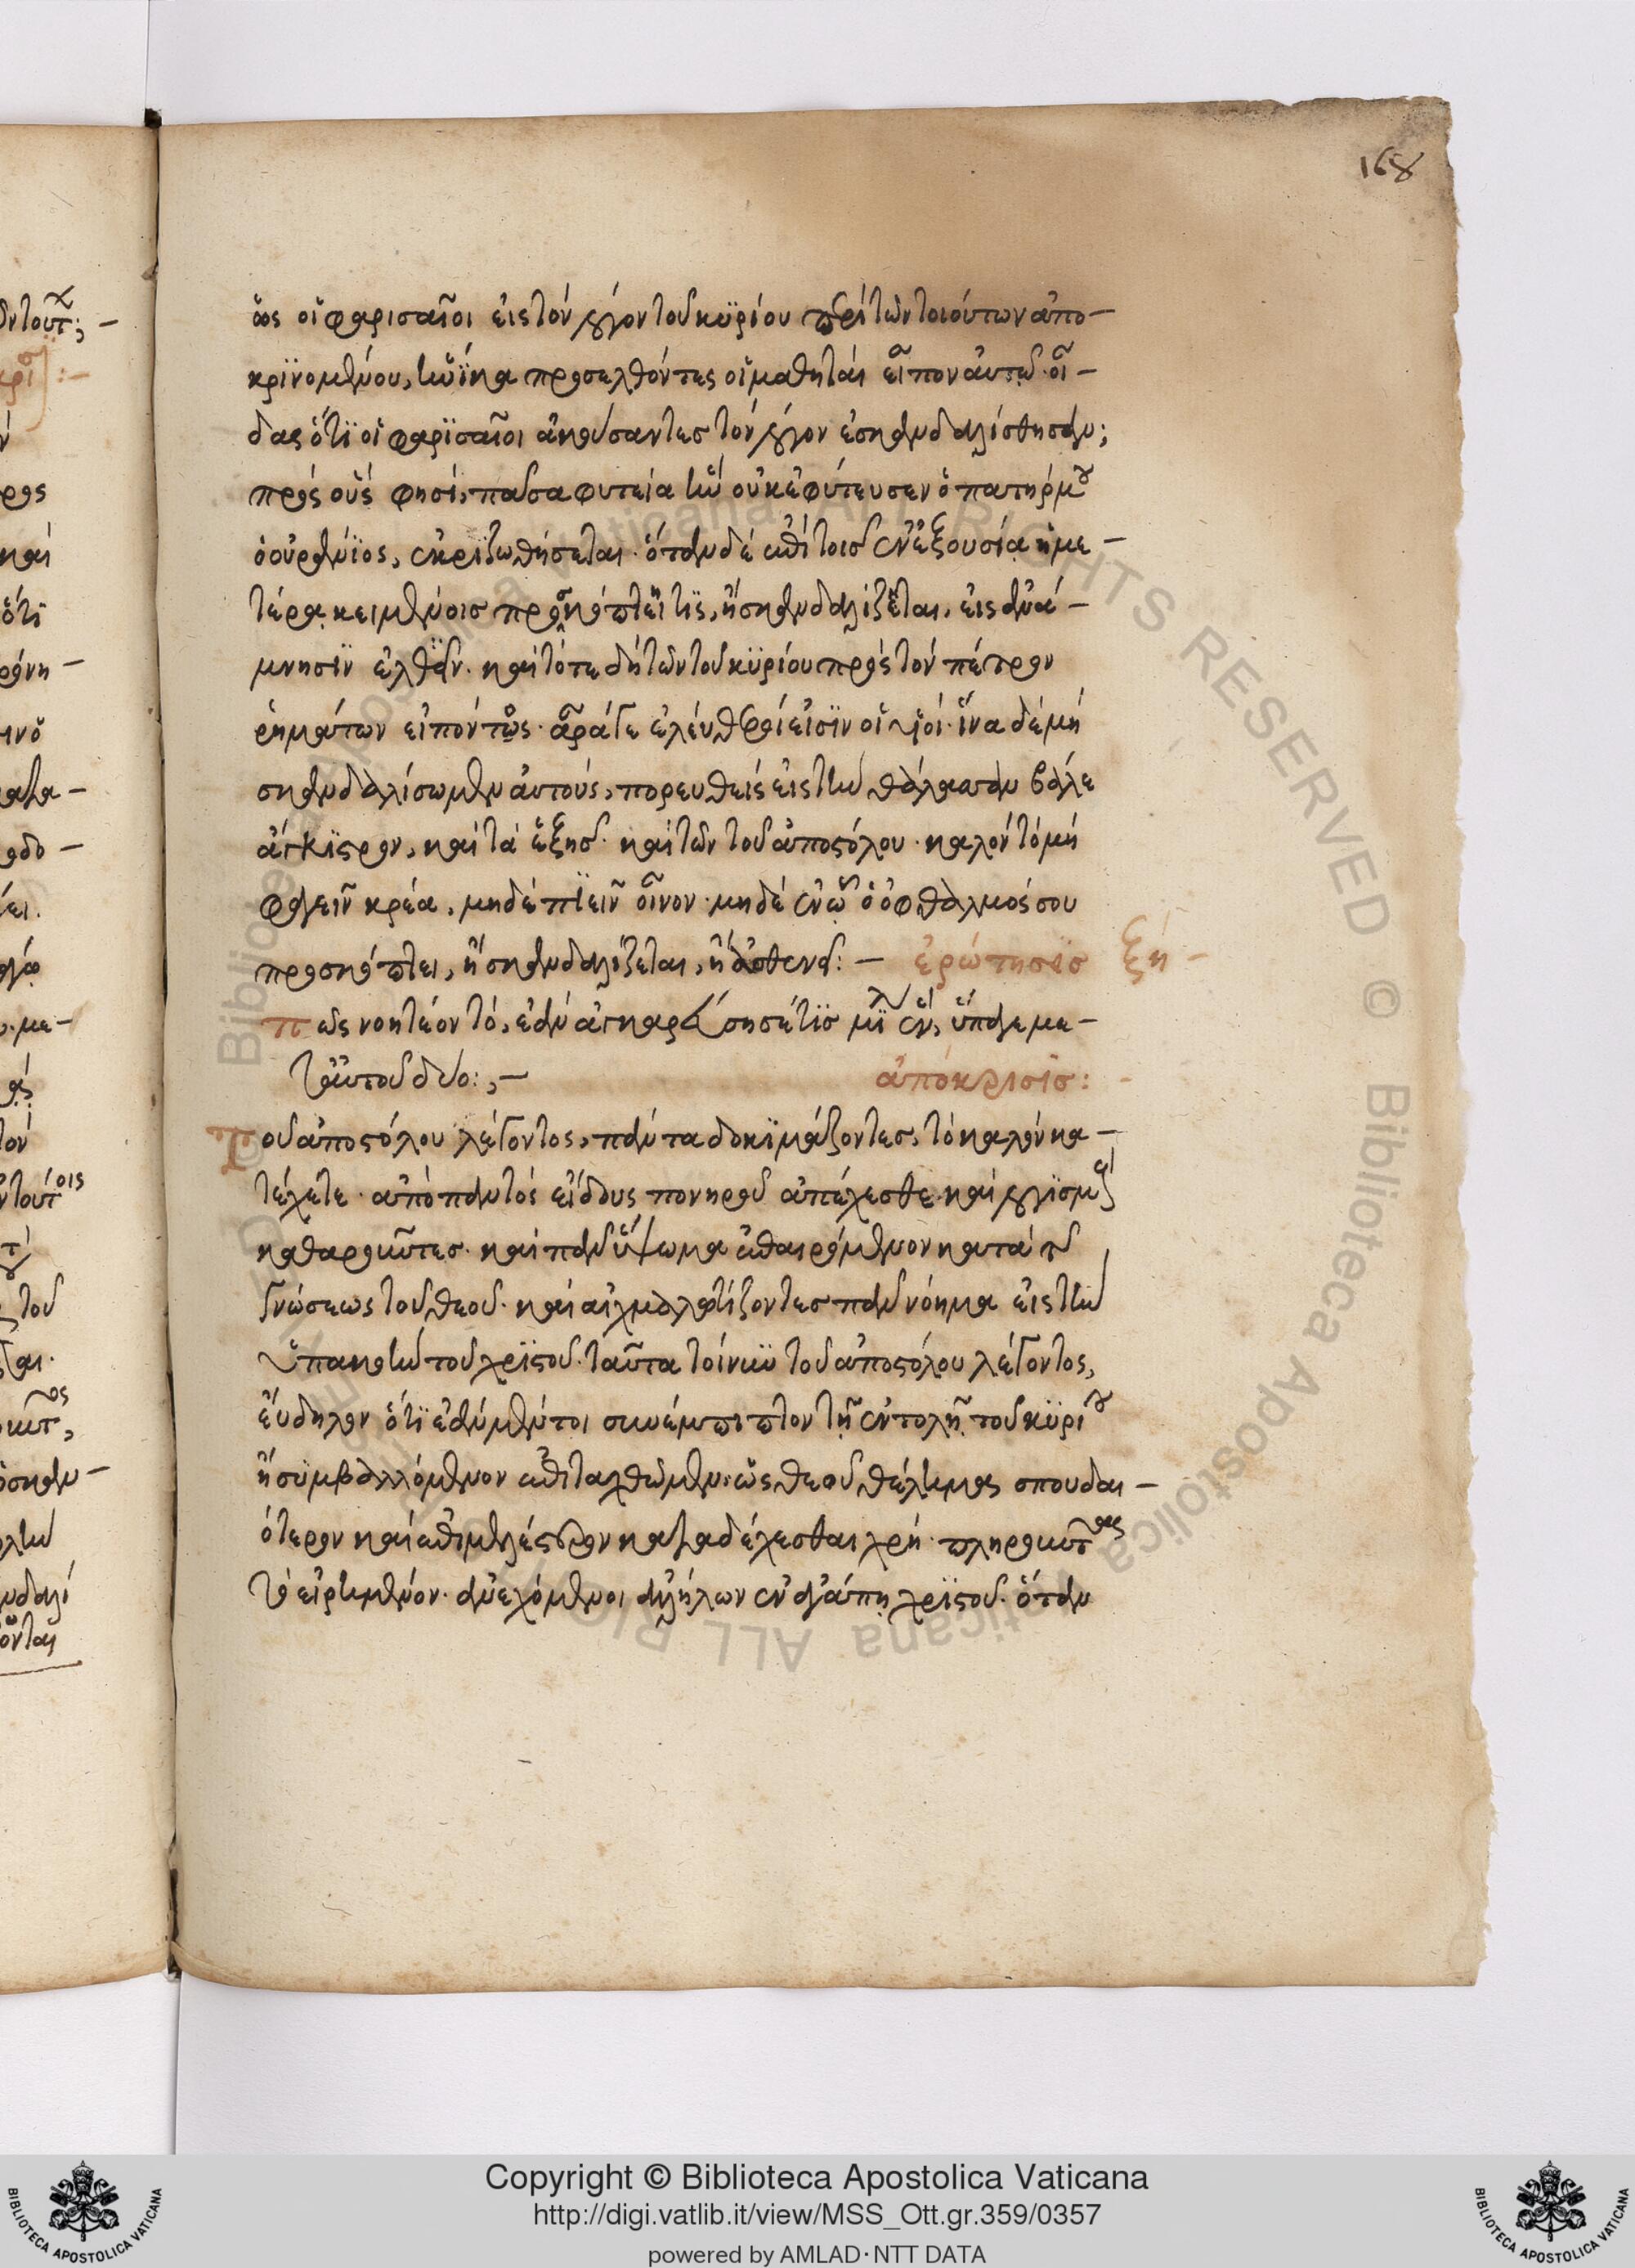 168
ὡς οἱ φαρισαῖοι εἰς τὸν λόγον τοῦ κυρίου περὶ τῶν τοιούτων ἀπο-
κρινομένου, ἡνίκα προσελθόντες οἱ μαθηταὶ εἶπον αὐτῷ· οἶ-
δας ὅτι οἱ φαρισαῖοι ἀκούσαντες τὸν λόγον ἐσκανδαλίσθησαν;
πρὸς οὓς φησὶ, πᾶσα φυτεία ἣν οὐκ ἐφύτευσεν ὁ πατήρ μου
ὁ οὐράνιος, ἐκριζωθήσεται· ὅταν δὲ ἐπὶ τοῖς ἐν ἐξουσίᾳ ἡμε-
τέρᾳ κειμένοις προσκόπτει τὶς, ἢ σκανδαλίζεται, εἰς ἀνά-
μνησιν ἐλθεῖν· καὶ τότε δὴ τῶν τοῦ κυρίου πρὸς τὸν πέτρον
ῥημάτων εἰπόντος· ἆρά γε ἐλεύθεροί εἰσιν οἱ υἱοί· ἵνα δὲ μὴ
σκανδαλίσωμεν αὐτούς, πορευθεὶς εἰς τὴν θάλασσαν βάλε
ἄγκιστρον, καὶ τὰ ἑξῆς· καὶ τῶν τοῦ ἀποστόλου· καλὸν τὸ μὴ
φαγεῖν κρέα, μηδὲ πιεῖν οἶνον· μηδὲ ἐν ᾧ ὁ ὀφθαλμός σου
προσκόπτει, ἢ σκανδαλίζεται, ἢ ἀσθενεῖ: — ἐρώτησις ξη -
πῶς νοητέον τὸ, ἐὰν ἀγγαρεύσῃ σέ τις μίλιον ἕν, ὕπαγε με-
τ' αὐτοῦ δύο:, — ἀπόκρισις:
Τοῦ ἀποστόλου λέγοντος, πάντα δοκιμάζοντες, τὸ καλὸν κα-
τέχετε· ἀπὸ παντὸς εἴδους πονηροῦ ἀπέχεσθε· καὶ λογισμοὺς
καθαιροῦντες· καὶ πᾶν ὕψωμα ἐπαιρόμενον κατὰ τῆς
γνώσεως τοῦ θεοῦ· καὶ αἰχμαλωτίζοντες πᾶν νόημα εἰς τὴν
ὑπακοὴν τοῦ χριστοῦ· ταῦτα τοίνυν τοῦ ἀποστόλου λέγοντος,
εὔδηλον ὅτι ἐὰν μέντοι συνέμπιπτον τῇ ἐντολῇ τοῦ κυρίου
ἢ συμβαλλόμενον ἐπιταχθῶμεν· ὡς θεοῦ θέλημα σπουδαι-
ότερον καὶ ἐπιμελέστερον καταδέχεσθαι χρή· πληροῦντας
τὸ εἰρημένον· ἀνεχόμενοι ἀλλήλων ἐν ἀγάπῃ χριστοῦ· ὅταν
Copyright © Biblioteca Apostolica Vaticana
http://digi.vatlib.it/view/MSS_Ott.gr.359/0357
powered by AMLAD·NTT DATA